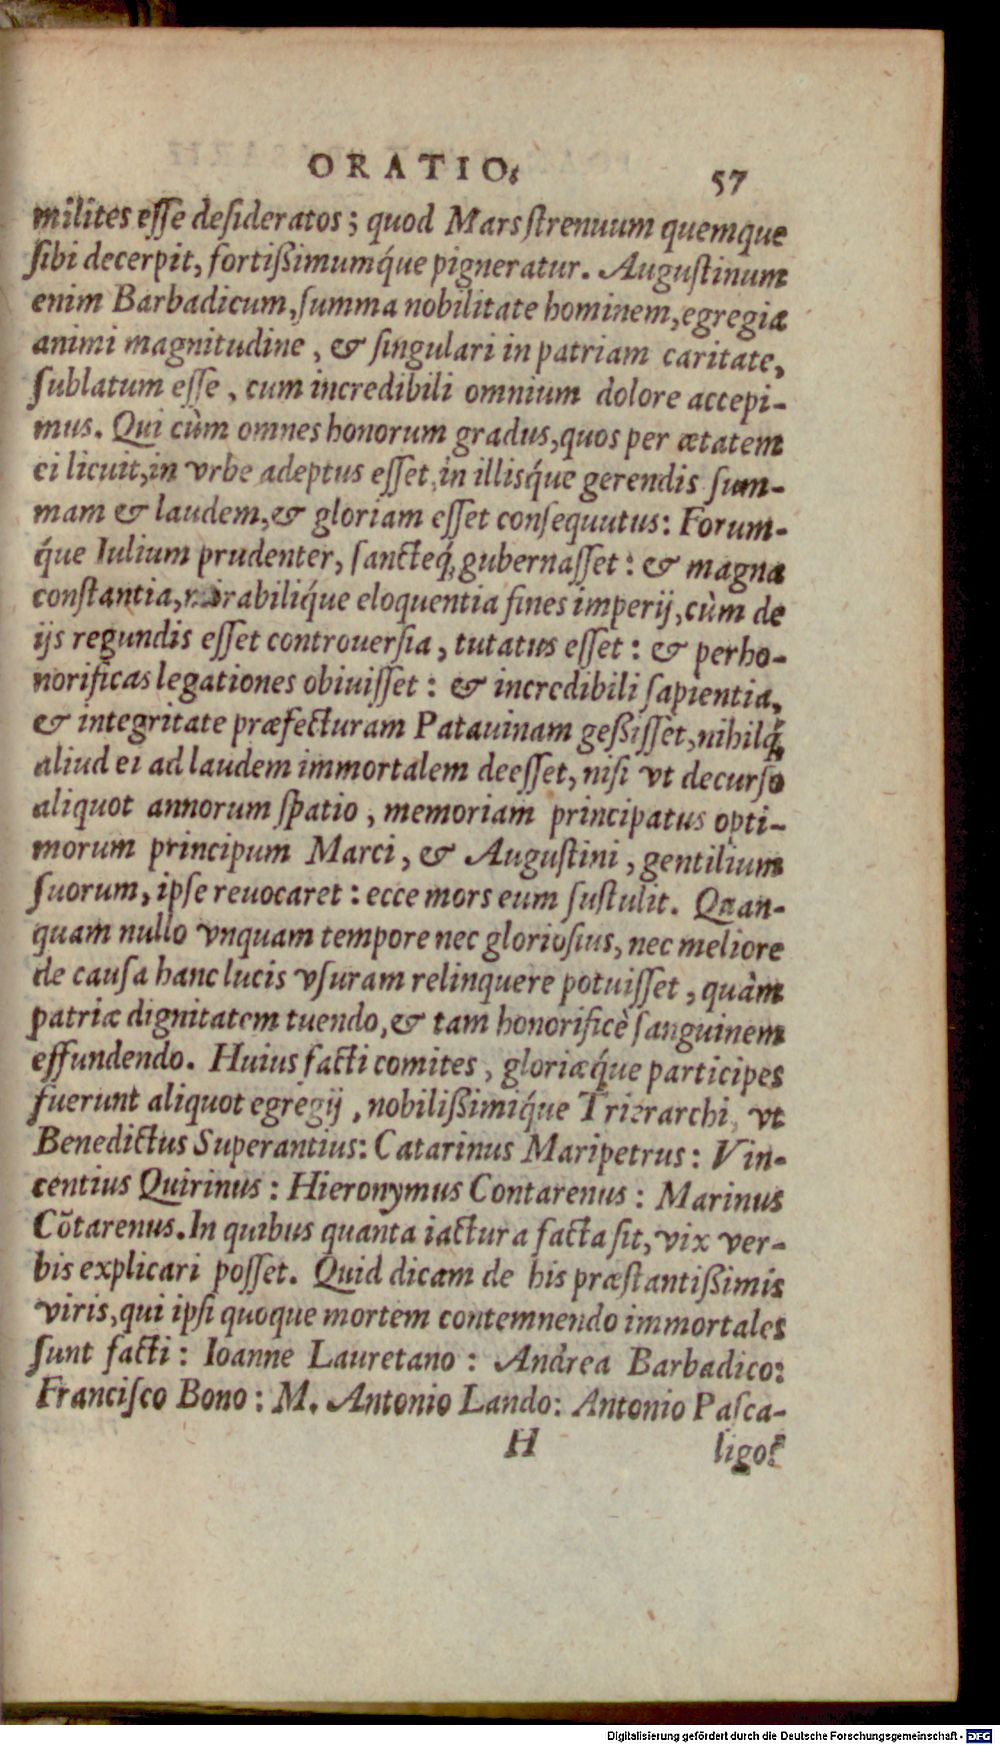 ORATIO.
57
milites eſſe deſideratos; quod Mars ſtrenuum quemque
ſibi decerpit, fortißimumq́ue pigneratur. Auguſtinum
enim Barbadicum, ſumma nobilitate hominem, egregiæ
animi magnitudine, & ſingulari in patriam caritate,
ſublatum eſſe, cum incredibili omnium dolore accepi-
mus. Qui cùm omnes honorum gradus, quos per ætatem
ei licuit, in vrbe adeptus eſſet, in illisq́ue gerendis ſum-
mam & laudem, & gloriam eſſet conſequutus: Forum-
q́ue Iulium prudenter, ſancteq́; gubernaſſet: & magna
conſtantia, mirabiliq́ue eloquentia fines imperij, cùm de
ijs regundis eſſet controuerſia, tutatus eſſet: & perho-
norificas legationes obiuiſſet: & incredibili ſapientia,
& integritate præfecturam Patauinam geßiſſet, nihilq́;
aliud ei ad laudem immortalem deeſſet, niſi vt decurſo
aliquot annorum ſpatio, memoriam principatus opti-
morum principum Marci, & Auguſtini, gentilium
ſuorum, ipſe reuocaret: ecce mors eum ſuſtulit. Quan-
quam nullo vnquam tempore nec glorioſius, nec meliore
de cauſa hanc lucis vſuram relinquere potuiſſet, quàm
patriæ dignitatem tuendo, & tam honorificè ſanguinem
effundendo. Huius facti comites, gloriæq́ue participes
fuerunt aliquot egregij, nobilißimiq́ue Trierarchi, vt
Benedictus Superantius: Catarinus Maripetrus: Vin-
centius Quirinus: Hieronymus Contarenus: Marinus
Cõtarenus. In quibus quanta iactura facta ſit, vix ver-
bis explicari poſſet. Quid dicam de his præſtantißimis
viris, qui ipſi quoque mortem contemnendo immortales
ſunt facti: Ioanne Lauretano: Andrea Barbadico:
Franciſco Bono: M. Antonio Lando: Antonio Paſca-
H
ligo:
Digitalisierung gefördert durch die Deutsche Forschungsgemeinschaft - DFG